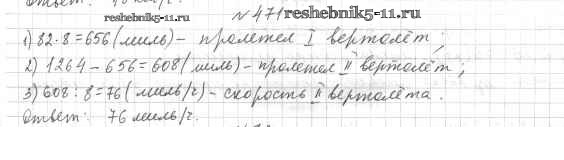 Ответ:
№471 reshebnik5-11.ru
reshebnik5-11.ru
1) 82·8=656(миль)- пролетел I вертолёт;
2) 1264-656=608(миль)-пролетел II вертолёт;
3) 608:8=76(миль/ч)-скорость II вертолёта.
Ответ: 76 миль/ч.